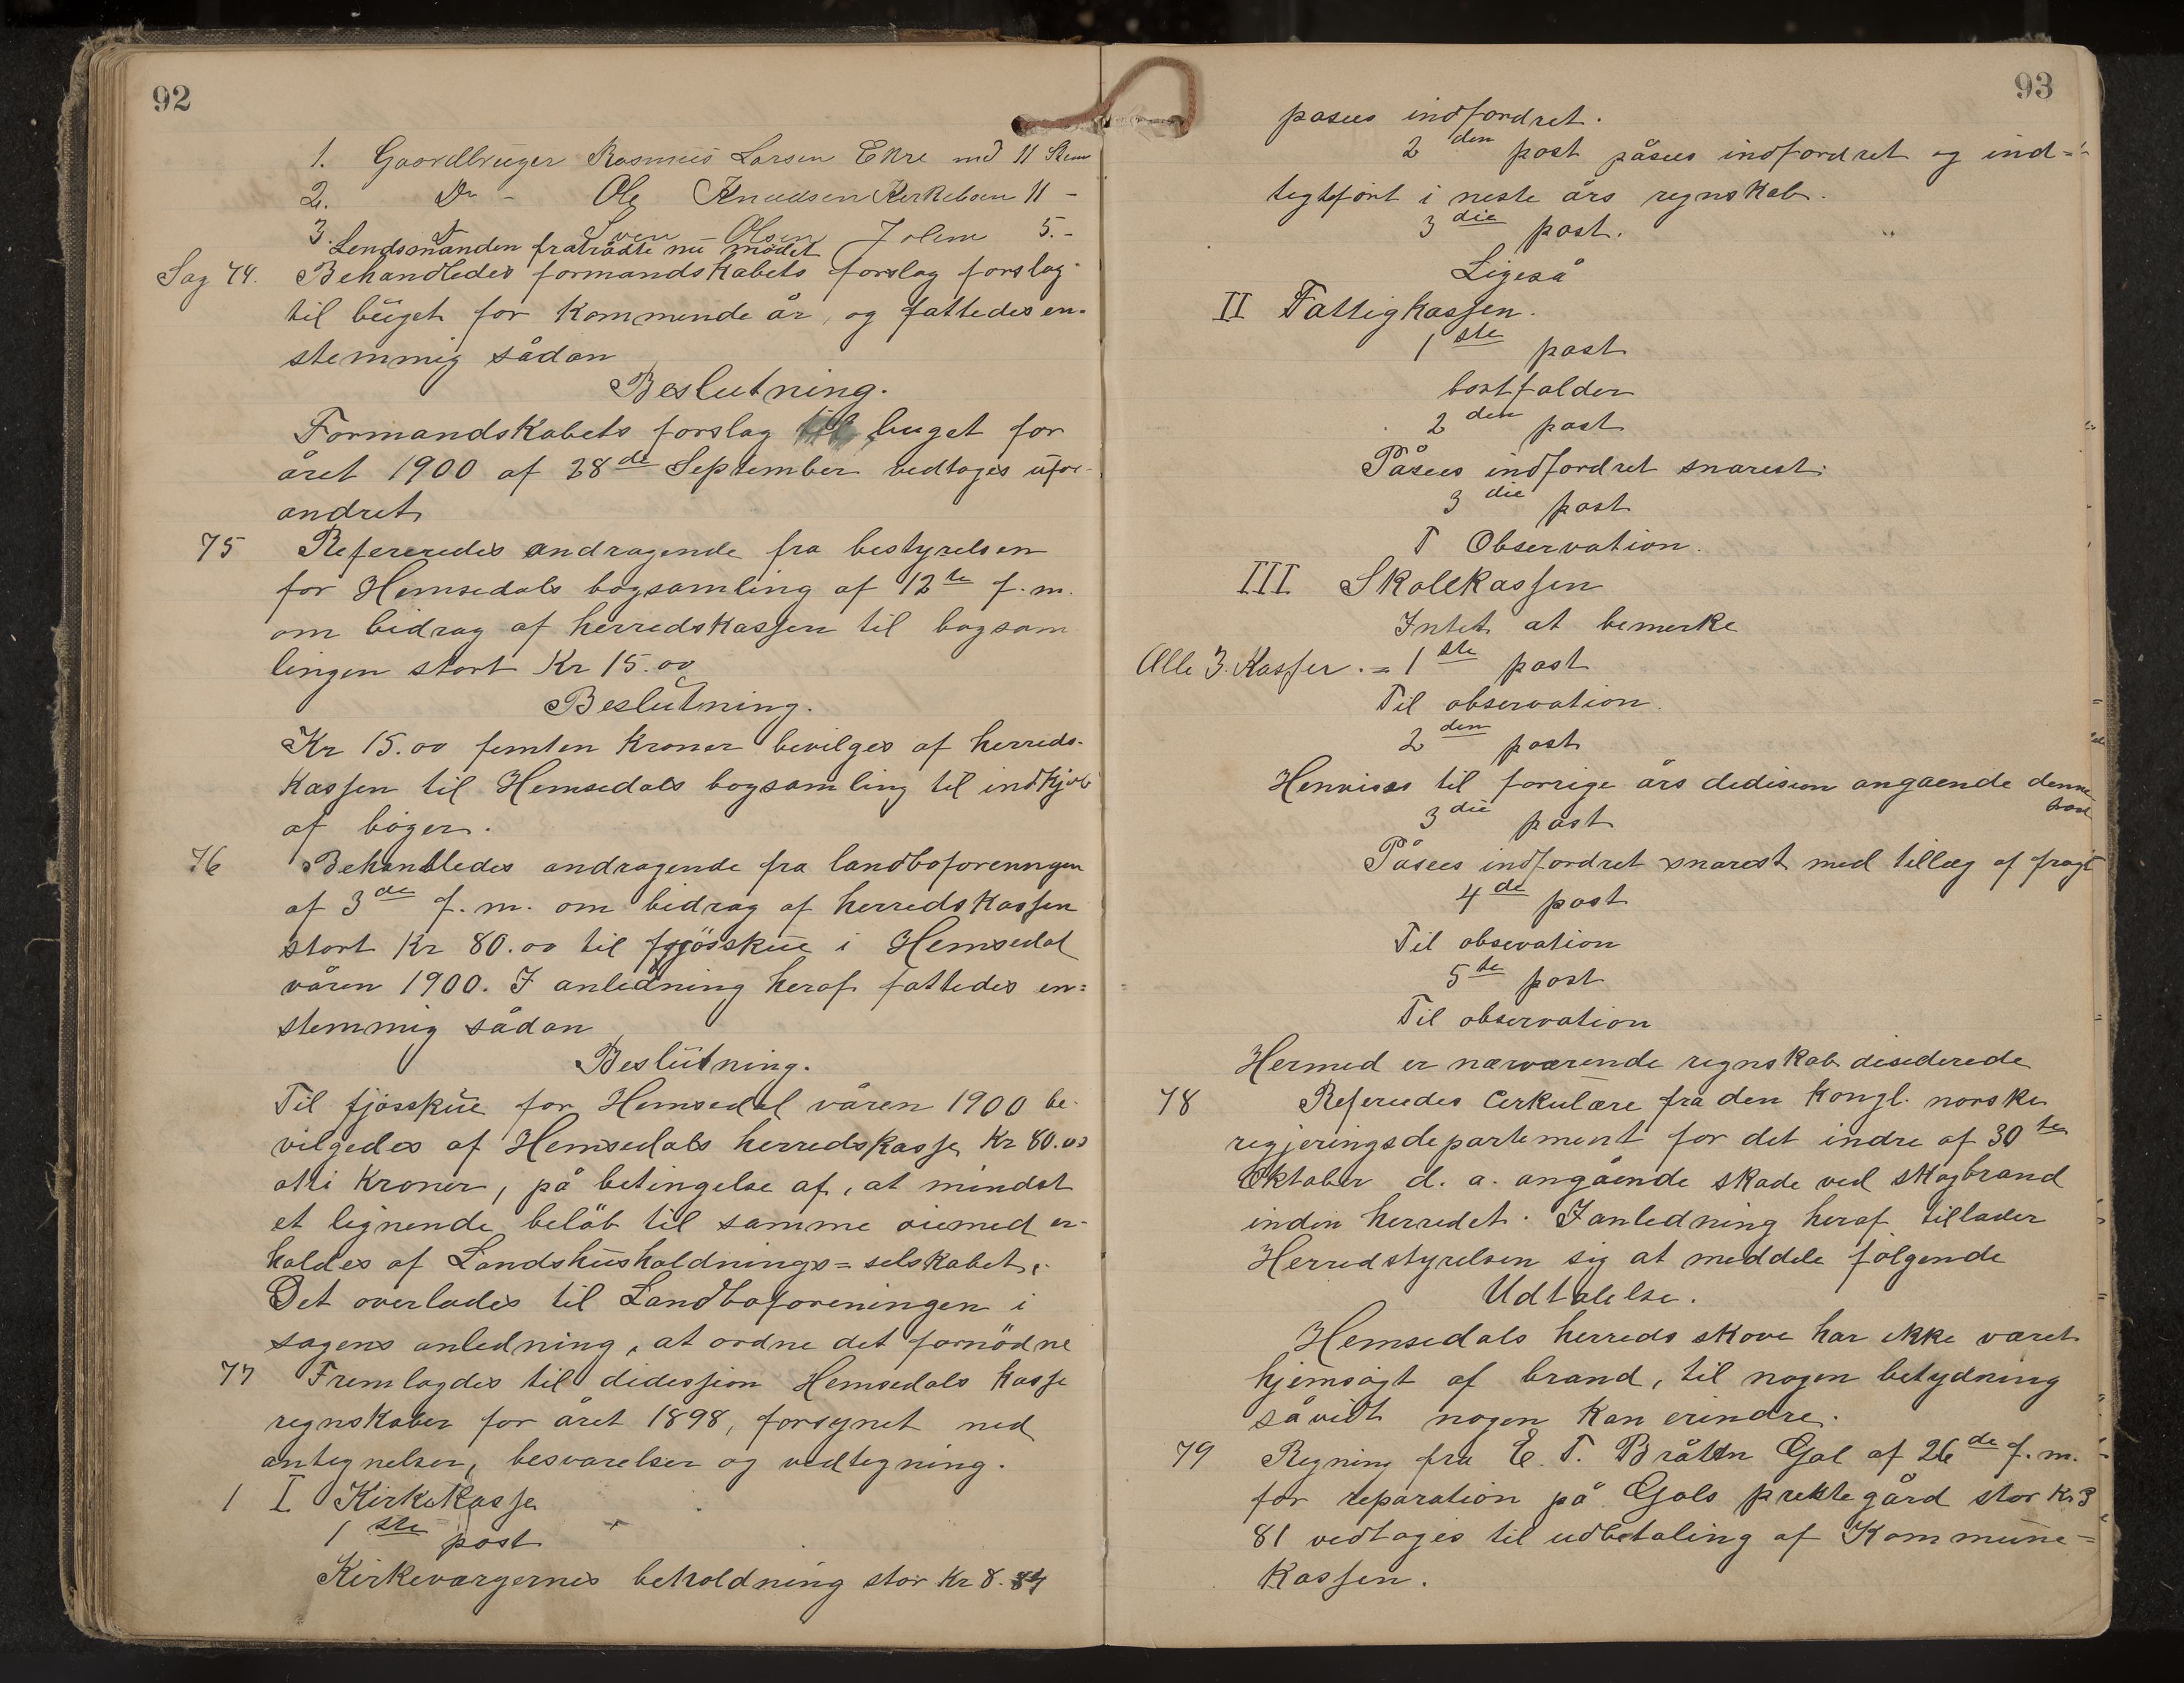 92
1. Gaardbruger Rasmus Larsen Ekre med 11 Stem
2. Do - Ole Knudsen Kirkeboen 11 -
3. Sven Olsen Jolem 5.-
Lendsmanden fratrådte nu mødet
Sag 74. Behandledes formandskabets forslag forslag
til buget for kommende år, og fattedes en-
stemmig sådan
Beslutning.
Formandskabets forslag til buget for
året 1900 af 28de September vedtages ufor-
andret
75 Refereredes andragende fra bestyrelsen
for Hemsedals bogsamling af 12te f.m.
om bidrag af herredskassen til bogsam
lingen stort Kr 15.00
Beslutning.
Kr 15.00 femten kroner bevilges af herreds-
kassen til Hemsedals bogsamling til indkjøb
af bøger.
76 Behandledes andragende fra landboforeningen
af 3de f.m. om bidrag af herredskassen
stort Kr 80.00 til fjösskue i Hemsedal
våren 1900. I anledning heraf fattedes en=
stemmig sådan
Beslutning.
Til fjösskue for Hemsedal våren 1900 be-
vilgedes af Hemsedals herredskasse Kr 80.00
otti kroner, på betingelse af, at mindst
et lignende belöb til samme öiemed er-
holdes af Landshusholdnings=selskabet.
Det overlades til Landboforeningen i
sagens anledning, at ordne det fornödne
77 Fremlagdes til didession Hemsedals kasse
regnskaber for året 1898, forsynet med
antegnelser, besvarelser og vedtegning.
1 I Kirkekasse
1ste post
Kirkeværgernes beholdning stor Kr 8.84
93
påsees indfordret.
2den post påsees indfordret og ind=
tegtefört i neste års regnskab.
3die post.
Ligeså
II Fattigkassen.
1ste post
bortfalder
2den post
Påsees indfordret snarest.
3die post
T Observation.
III Skolekassen
Intet at bemerke
Alle 3. Kasser. = 1ste post
Til observation.
2den post
Henvises til forrige års dedision angaende denne
3die post
Påsees indfordret snarest med tillæg af fragt
4de post
Til obsevation
5te post
Til observation
Hermed er nærværende regnskab disederede
78 Refereedes Cerkulære fra den kongl. norske
regjeringsdepartement for det indre af 30te
Oktober d. a. angående skade ved skogbrand
inden herredet. I anledning heraf tillader
Herredstyrelsen sig at meddele følgende
Udtalelse.
Hemsedals herreds skove har ikke været
hjemsögt af brand, til nogen betydning
såvidt nogen kan erindre.
79 Regning fra E. T. Bråten Gol af 26de f.m.
for reparation på Gols prestegård stor Kr 3
81 vedtages til udbetaling af Kommune=
kassen.